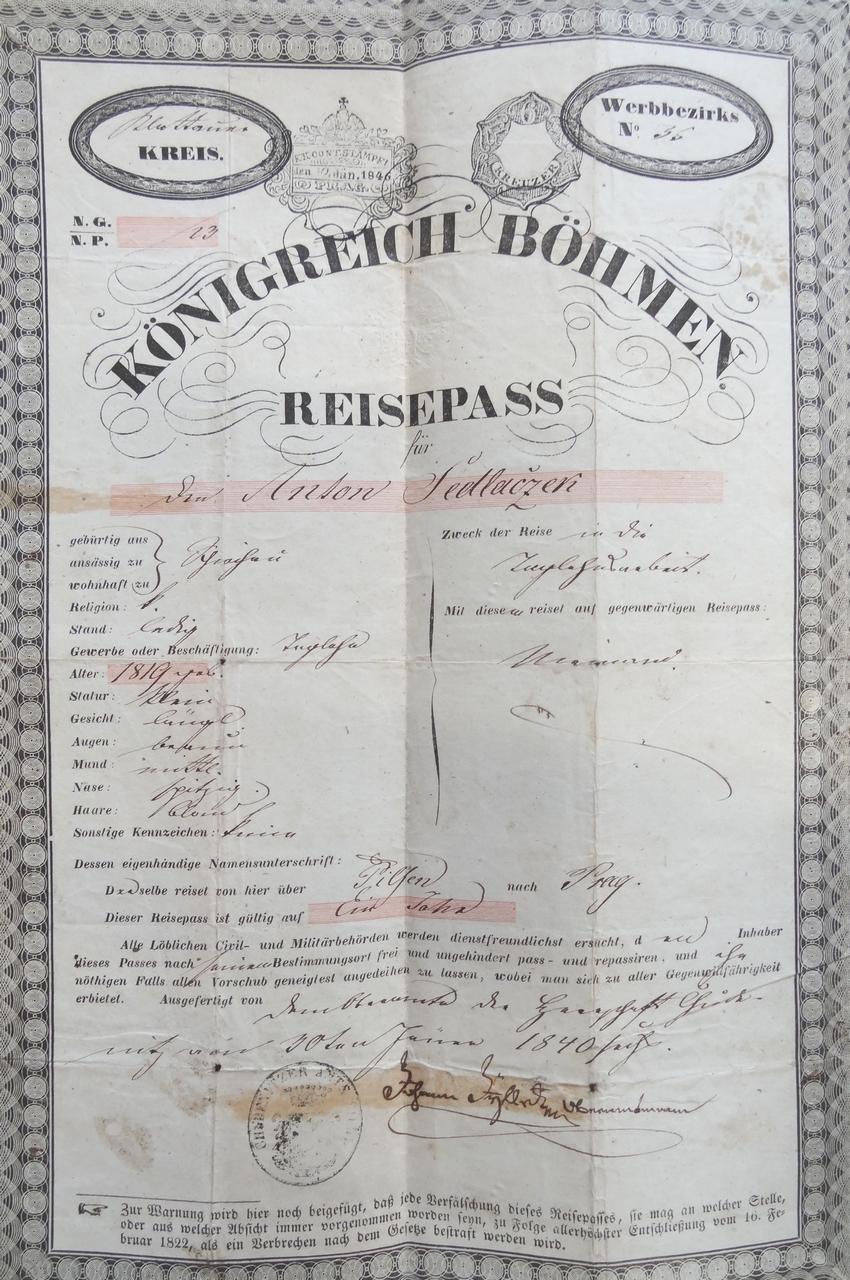 Klattauer
KREIS.
K.K. CONT. STÄMPEL
den 12. Jän. 1846
PRAG.
6
KREUZER
Werbbezirks
No. 36
N. G.
N. P. 23
KÖNIGREICH BÖHMEN
REISEPASS
für
den Anton Sedlaczek
gebürtig aus
ansässig zu
wohnhaft zu
Religion: k.
Stand: ledig
Gewerbe oder Beschäftigung: Taglohn
Alter: 1819 geb.
Statur: klein
Gesicht: längl.
Augen: braun
Mund: mittl.
Nase: spitzig
Haare: blond
Sonstige Kennzeichen: keine
Zweck der Reise in die
Taglohnarbeit.
Mit diesem reiset auf gegenwärtigen Reisepass:
Niemand.
Dessen eigenhändige Namensunterschrift:
Derselbe reiset von hier über Pilsen nach Prag.
Dieser Reisepass ist gültig auf Ein Jahr
Alle Löblichen Civil- und Militärbehörden werden dienstfreundlichst ersucht, d en Inhaber
dieses Passes nach seinem Bestimmungsort frei und ungehindert pass- und repassiren, und ihm
nöthigen Falls allen Vorschub geneigtest angedeihen zu lassen, wobei man sich zu aller Gegenwillfährigkeit
erbietet. Ausgefertigt von dem Oberamte der Herrschaft Chude-
nitz am 30ten Jäner 1840 sechs.
CHUDENITZER AMTS
Johann Oberamtmann
Zur Warnung wird hier noch beigefügt, daß jede Verfälschung dieses Reisepasses, sie mag an welcher Stelle,
oder aus welcher Absicht immer vorgenommen worden seyn, zu Folge allerhöchster Entschließung vom 16. Fe-
bruar 1822, als ein Verbrechen nach dem Gesetze bestraft werden wird.